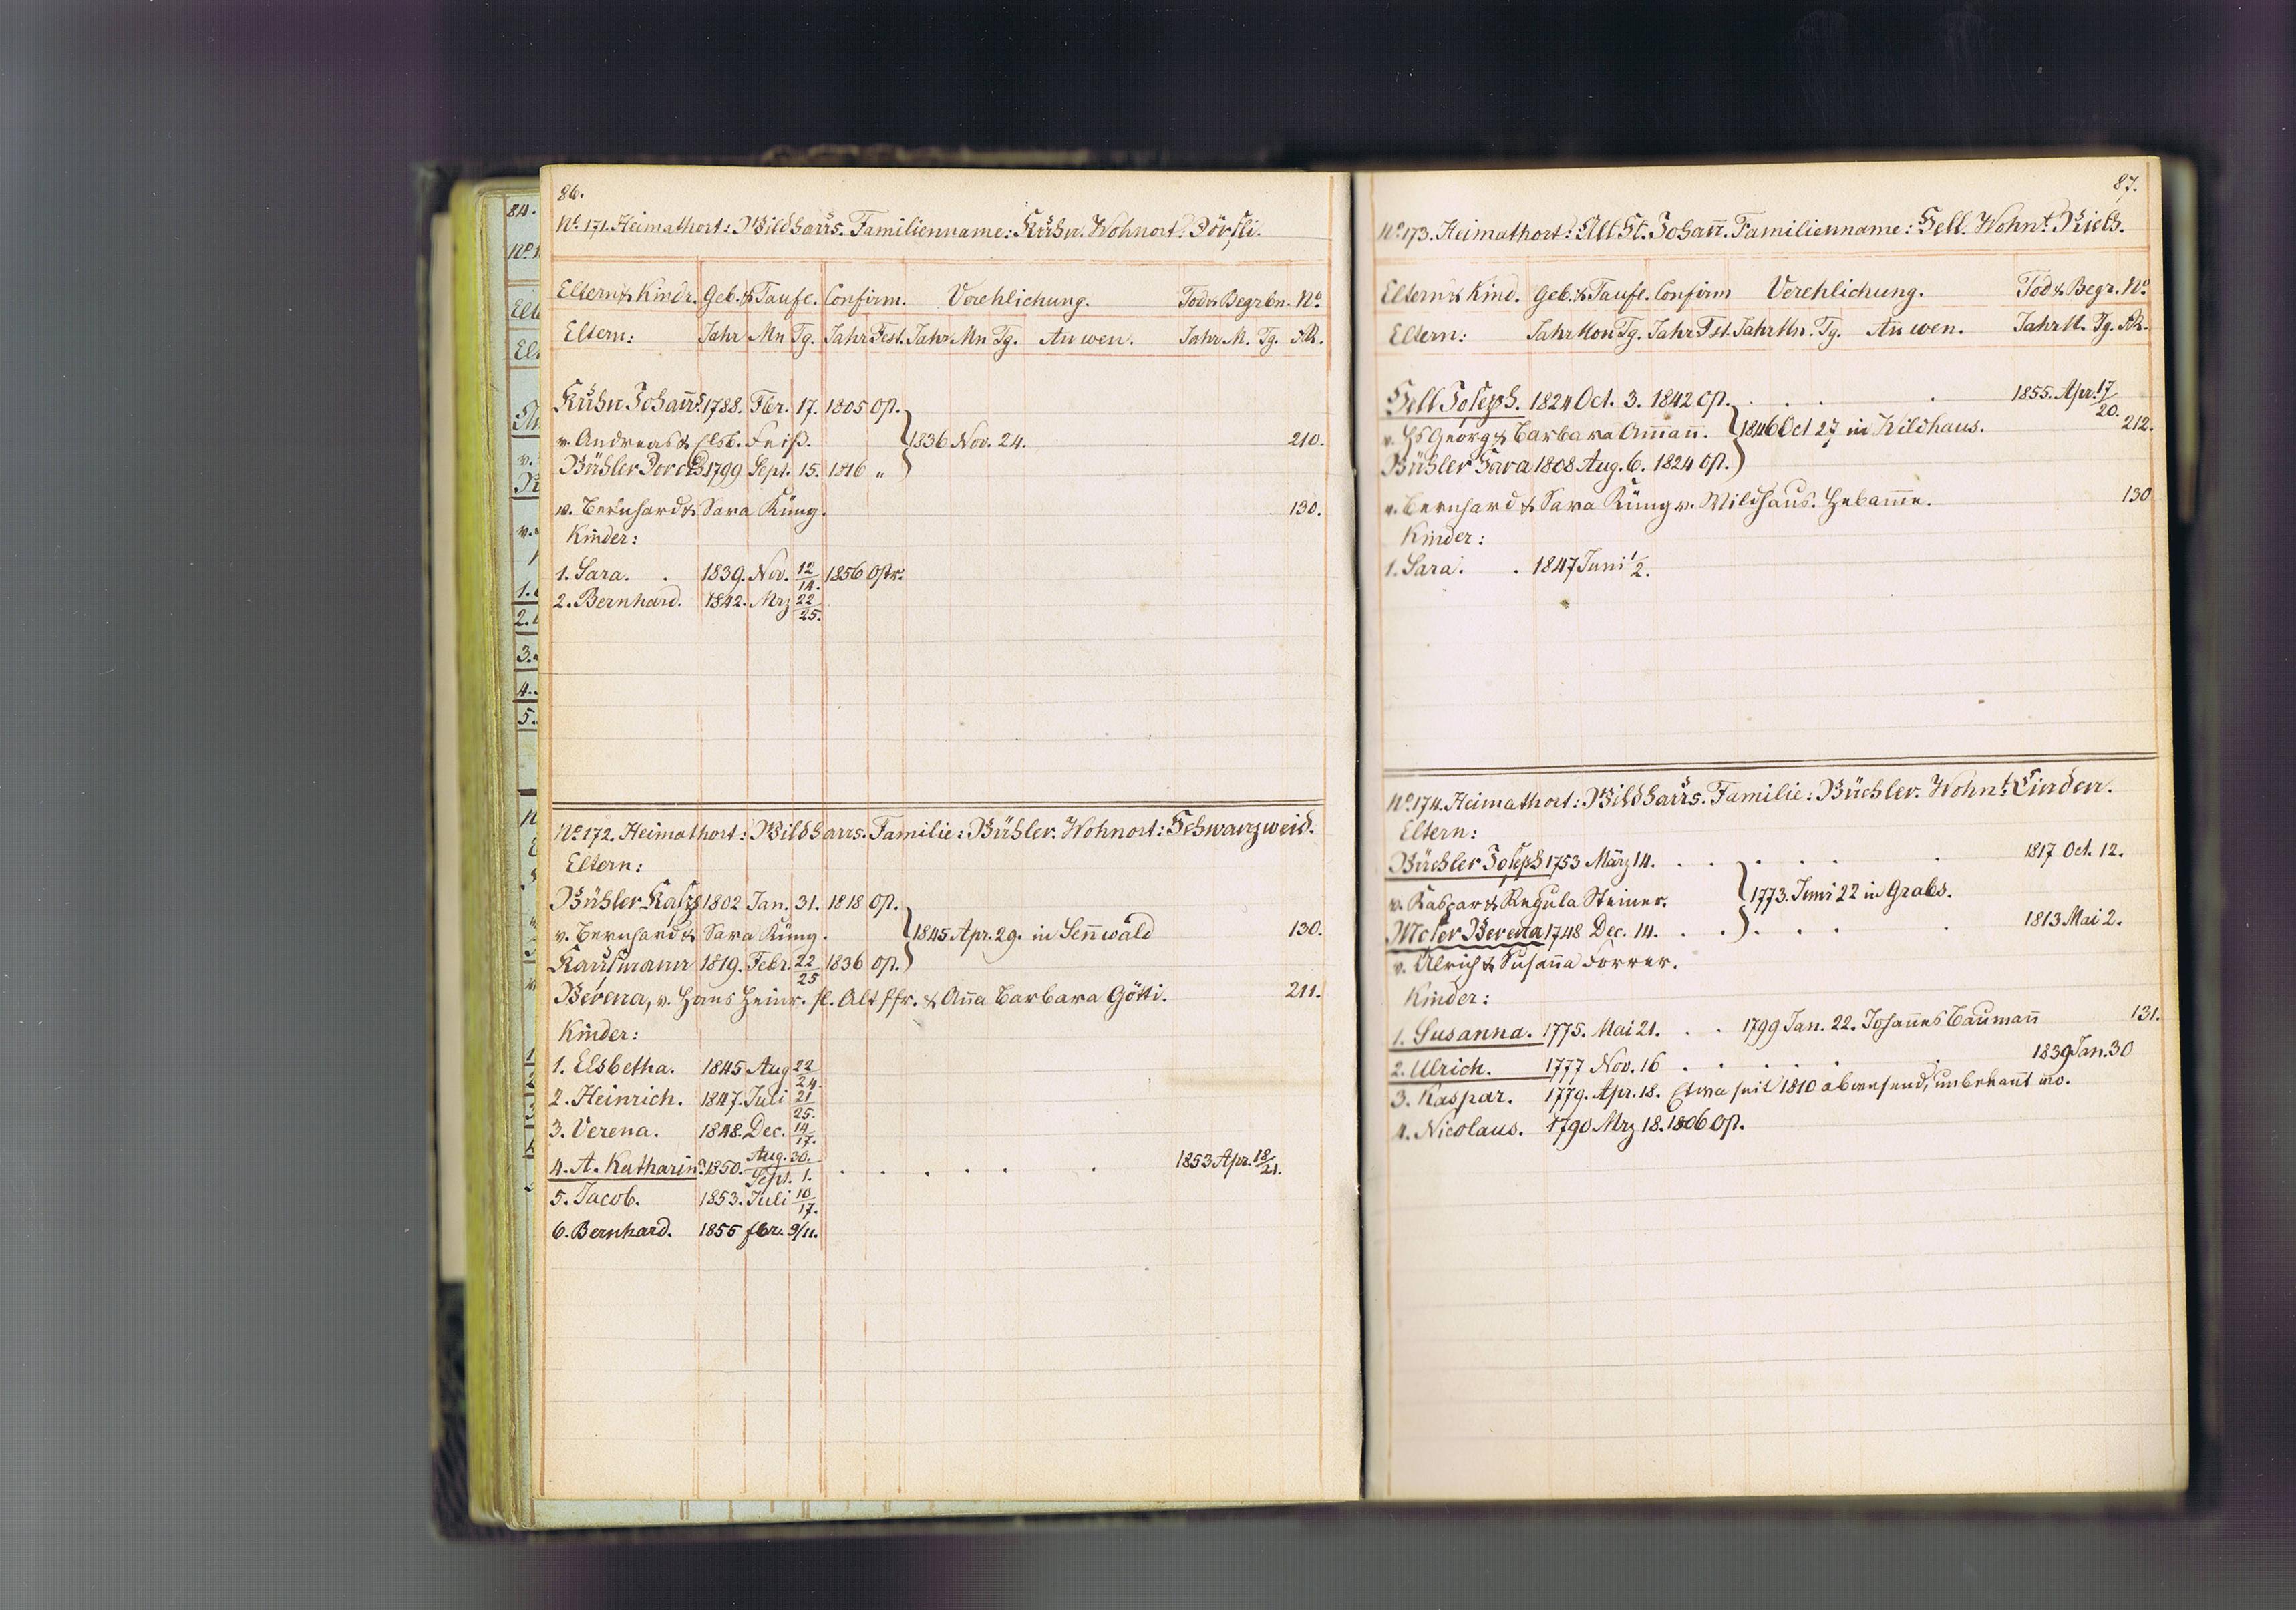 86.
No. 171. Heimathort: Wildhaus. Familienname: Kuhn. Wohnort: Dörfli.
Eltern & Kindr. Geb. & Taufe. Confirm. Verehlichung. Tod & Begrbn. No.
Eltern: Jahr Mn Tg. Jahr Fest. Jahr Mn Tg. An wen. Jahr M. Tg. FR.
Kuhn Johañs. 1788. Fbr. 17. 1805 Op.
v. Andreas & Elsb. Feiß. 1836 Nov. 24. 210.
Bühler Doroth. 1799 Sept. 15. 1816 "
v. Bernhard & Sara Küng. 130.
Kinder:
1. Sara. . 1839. Nov. 12/14. 1856 Ostr.
2. Bernhard. 1842. Mrz 22/25.
No. 172. Heimathort: Wildhaus. Familie: Bühler. Wohnort: Schwarzweid.
Eltern:
Bühler Kasp 1802 Jan. 31. 1818 Op.
v. Bernhard & Sara Küng. 1845 Apr. 29. in Señwald 130.
Kaufmann 1819. Febr. 22/25 1836 Op.
Verena, v. Hans Heinr. sl. Alt Pfr. & Aña Barbara Götti. 211.
Kinder:
1. Elsbetha. 1845 Aug 22/24.
2. Heinrich. 1847. Juli 21/25.
3. Verena. 1848. Dec. 14/17.
4. A. Katharin. 1850. Aug. 30./Sept. 1. . . . . . . 1853 Apr. 18/21.
5. Jacob. 1853. Juli 10/17.
6. Bernhard. 1855 fbr. 9/11.
87.
No. 173. Heimathort: Alt St. Johañ. Familienname: Sell. Wohnt. Rieth.
Eltern & Kind. Geb. & Taufe. Confirm Verehlichung. Tod & Begr. No.
Eltern: Jahr Mon Tg. Jahr Fst. Jahr Mn. Tg. An wen. Jahr M. Tg. FR.
Sell Joseph. 1824 Oct. 3. 1842 Op. . . . . 1855. Apr. 17/20.
v. Hs Georg & Barbara Amañ. 1846 Oct 27 in Wildhaus. 212.
Bühler Sara 1808 Aug. 6. 1824 Op.
v. Bernhard & Sara Küng v. Wildhaus. Hebame. 130
Kinder:
1. Sara. . 1847 Juni 1/2.
No. 174. Heimathort: Wildhaus. Familie: Büchler. Wohnt. Linden.
Eltern:
Büchler Joseph 1753 März 14. . . . . . . 1817 Oct. 12.
v. Kaspar & Regula Steiner. 1773. Juni 22 in Grabs.
Moser Verena 1748 Dec. 14. . . . . . . 1813 Mai 2.
v. Ulrich & Susaña Forrer.
Kinder:
1. Susanna. 1775. Mai 21. . . 1799 Jan. 22. Johañes Baumañ 131.
2. Ulrich. 1777 Nov. 16 . . . . . . 1839 Jan. 30
3. Kaspar. 1779. Apr. 18. Etwa seit 1810 abwesend, unbekañt wo.
4. Nicolaus. 1790 Mrz 18. 1806 Op.